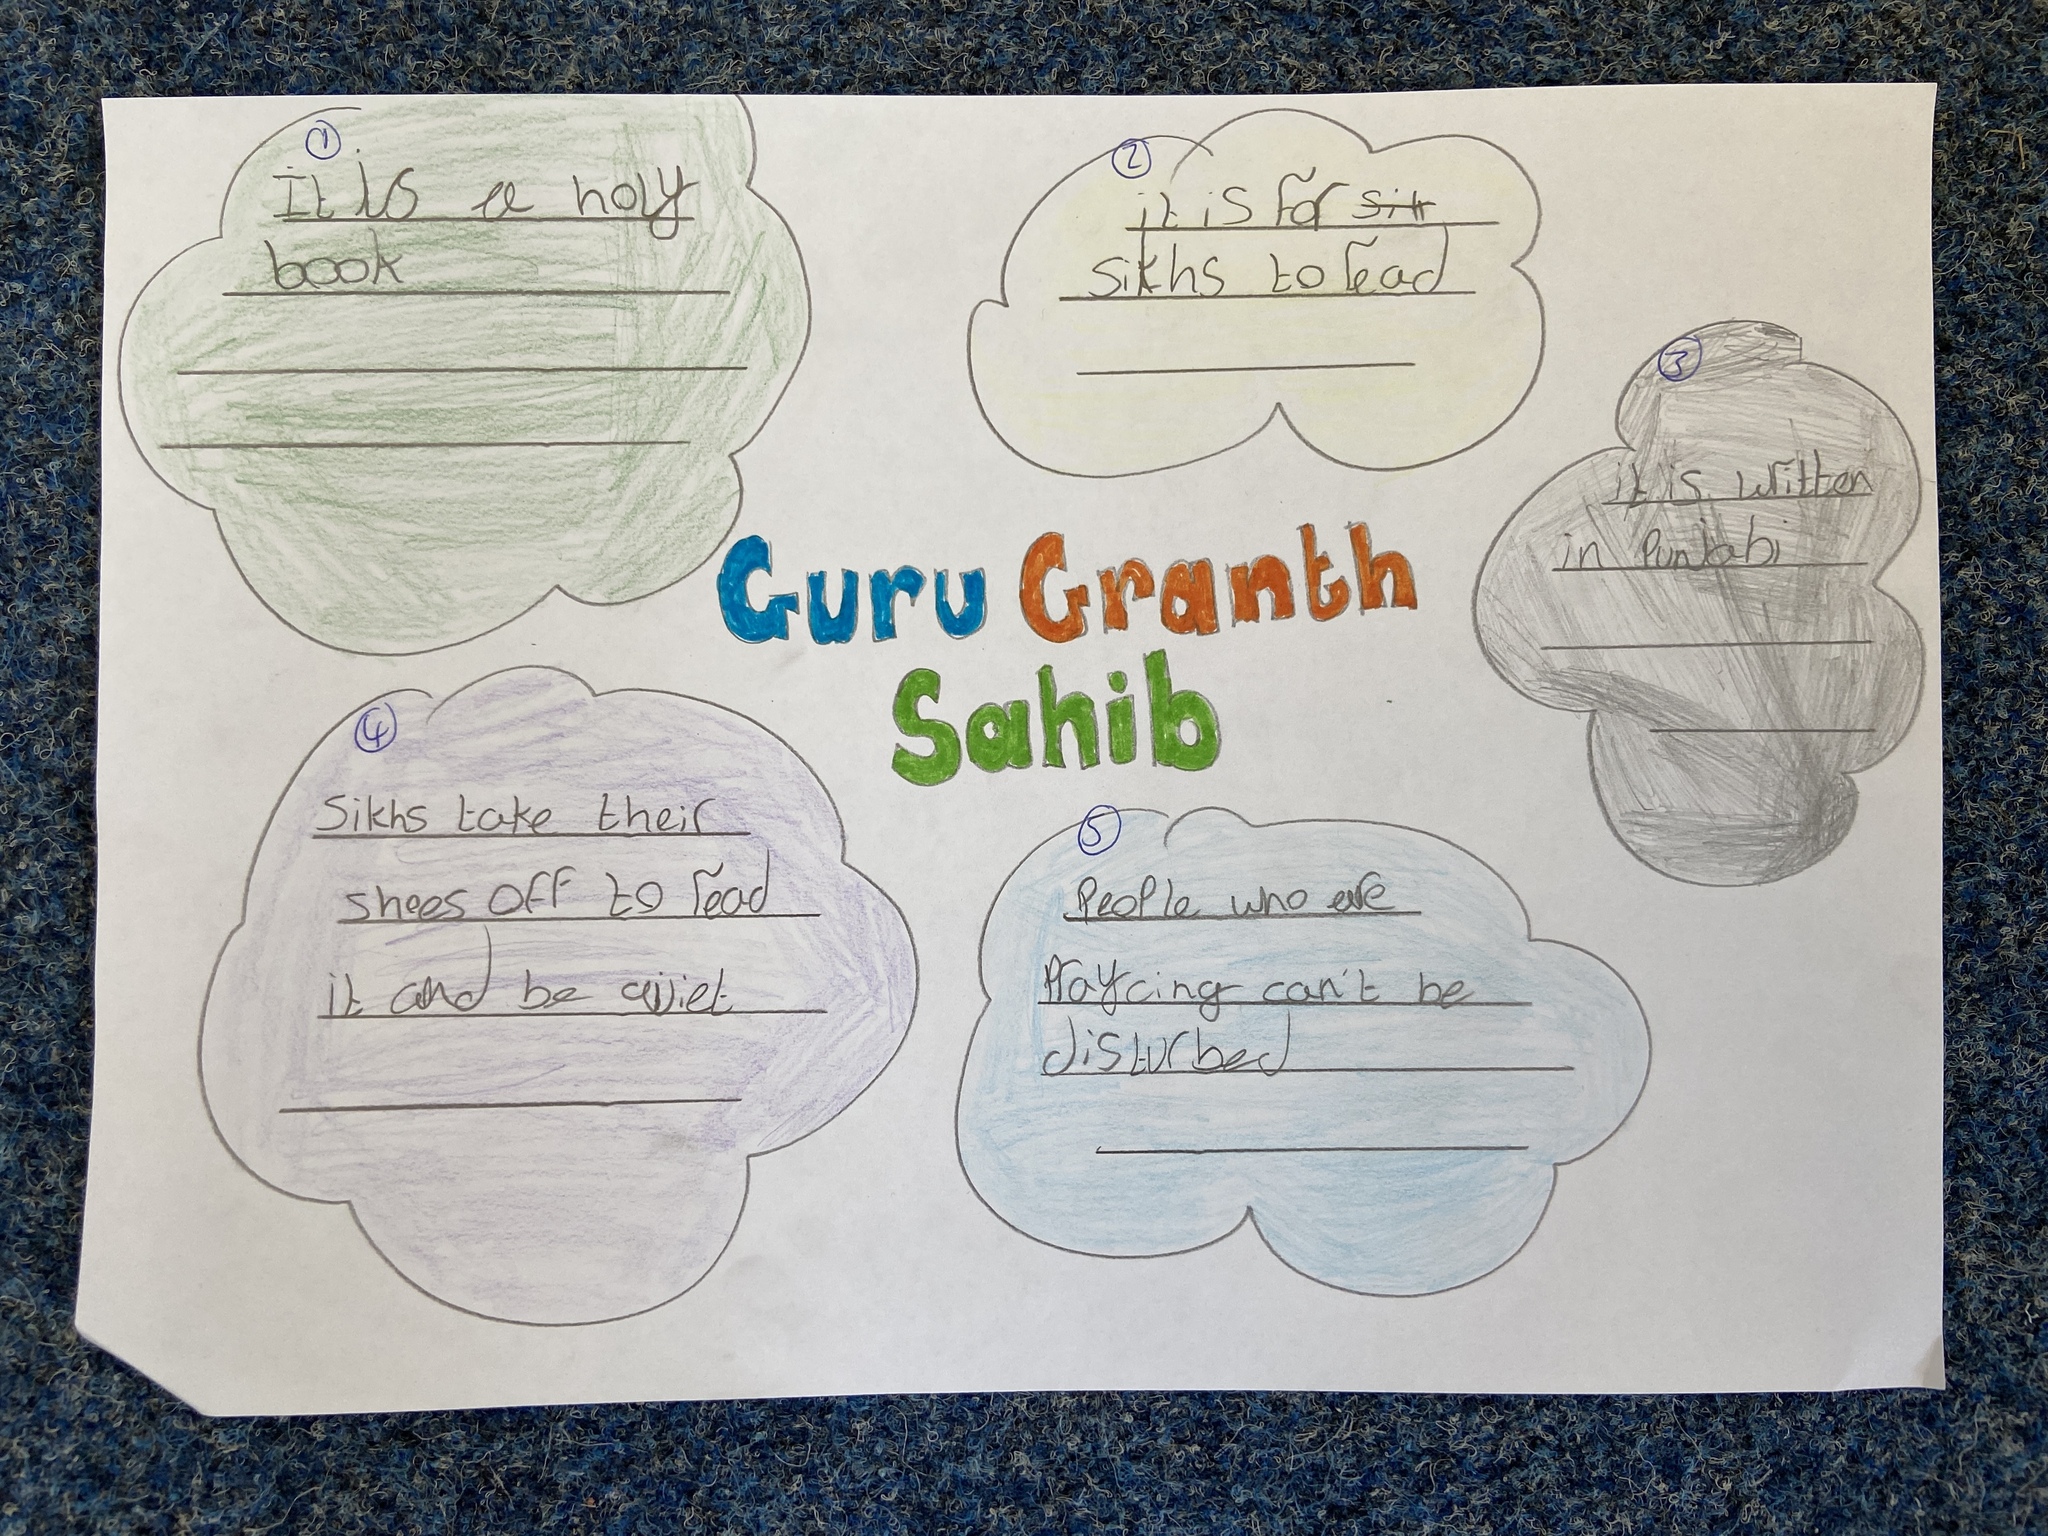 ①
It is a holy
book
②
it is for sik
sikhs to read
③
it is written
in Punjabi
Guru Granth
Sahib
④
Sikhs take their
shoes off to read
it and be quiet
⑤
People who are
Praycing can't be
disturbed